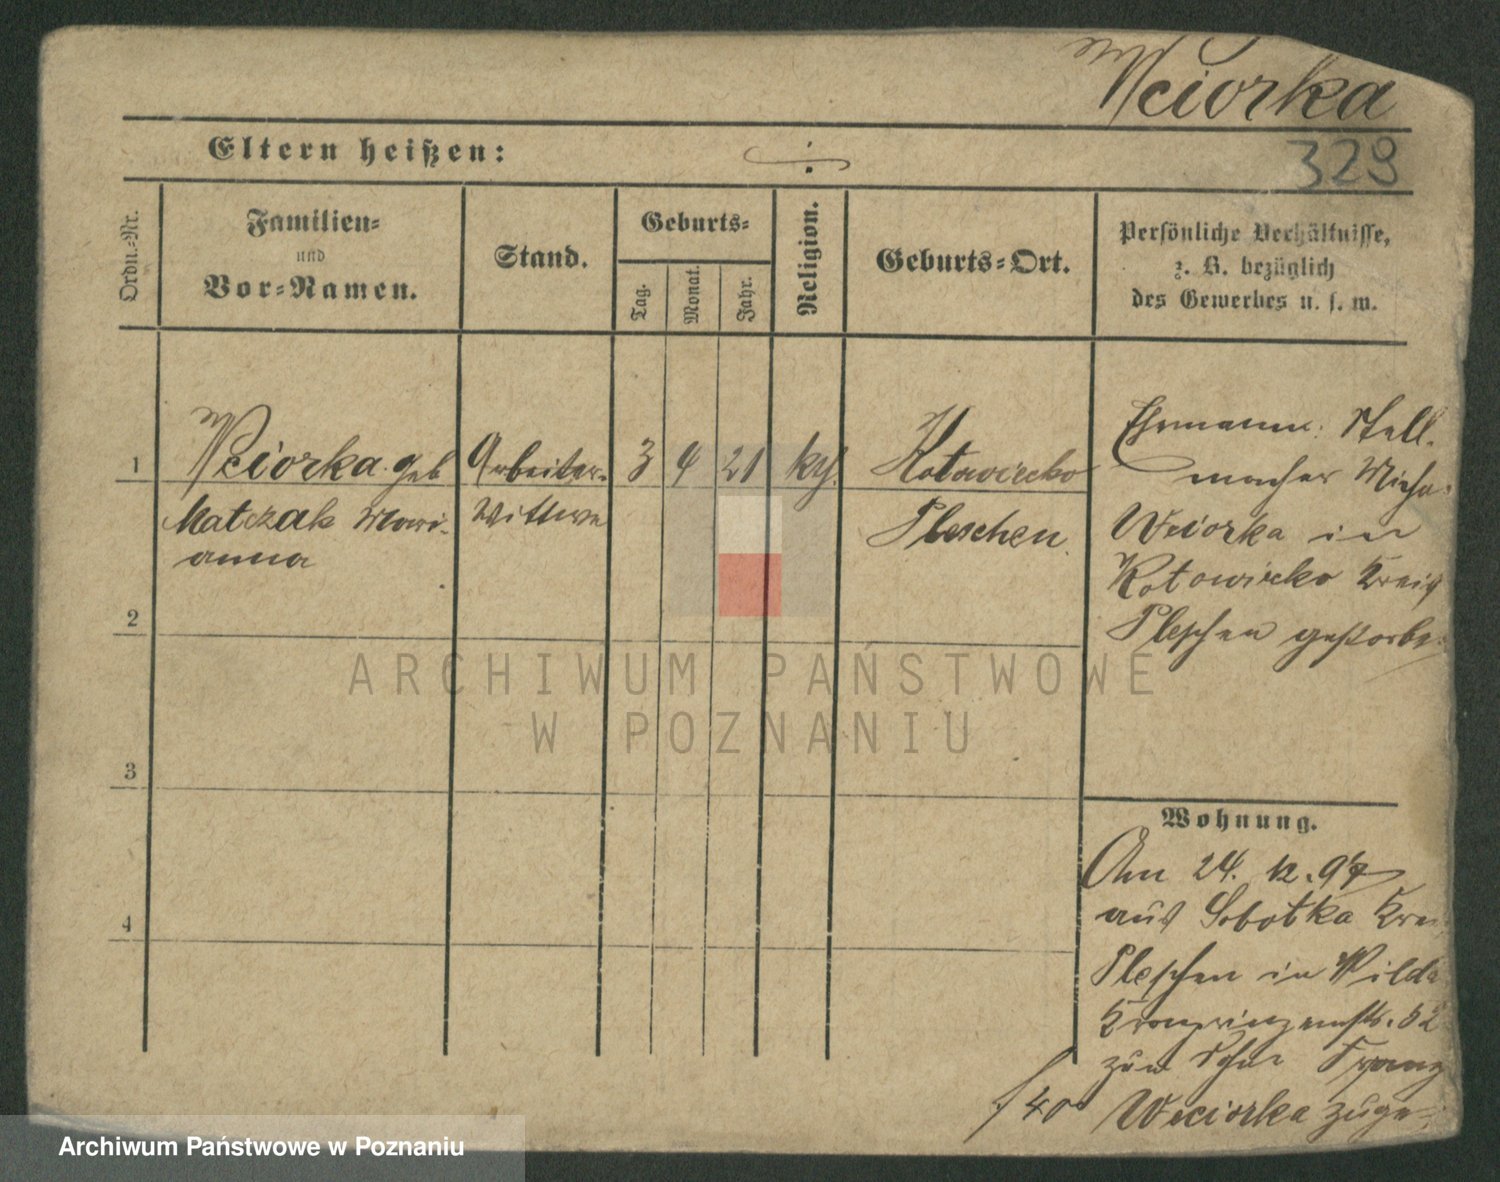 Wciorka
329
Eltern heißen:
Ordn.-Nr.
Familien-
und
Vor-Namen.
Stand.
Geburts-
Tag.
Monat.
Jahr.
Religion.
Geburts-Ort.
Persönliche Verhältnisse,
z. B. bezüglich
des Gewerbes u. s. w.
1
Wciorka geb
Arbeiter-
3
4
21
kth.
Kotowiecko
Matczak Mari-
Wittwe
Pleschen
anna
Ehemann: Stell-
macher Micha
Wciorka in
Kotowiecko Kreis
Pleschen gestorbe
2
3
4
ARCHIWUM PAŃSTWOWE
W POZNANIU
Wohnung.
Am 24. 12. 97
aus Sobotka Krei
Pleschen in Wilda
Kronprinzenstr. 52
zum Sohn Franz
Wciorka zuge-
f 40
Archiwum Państwowe w Poznaniu